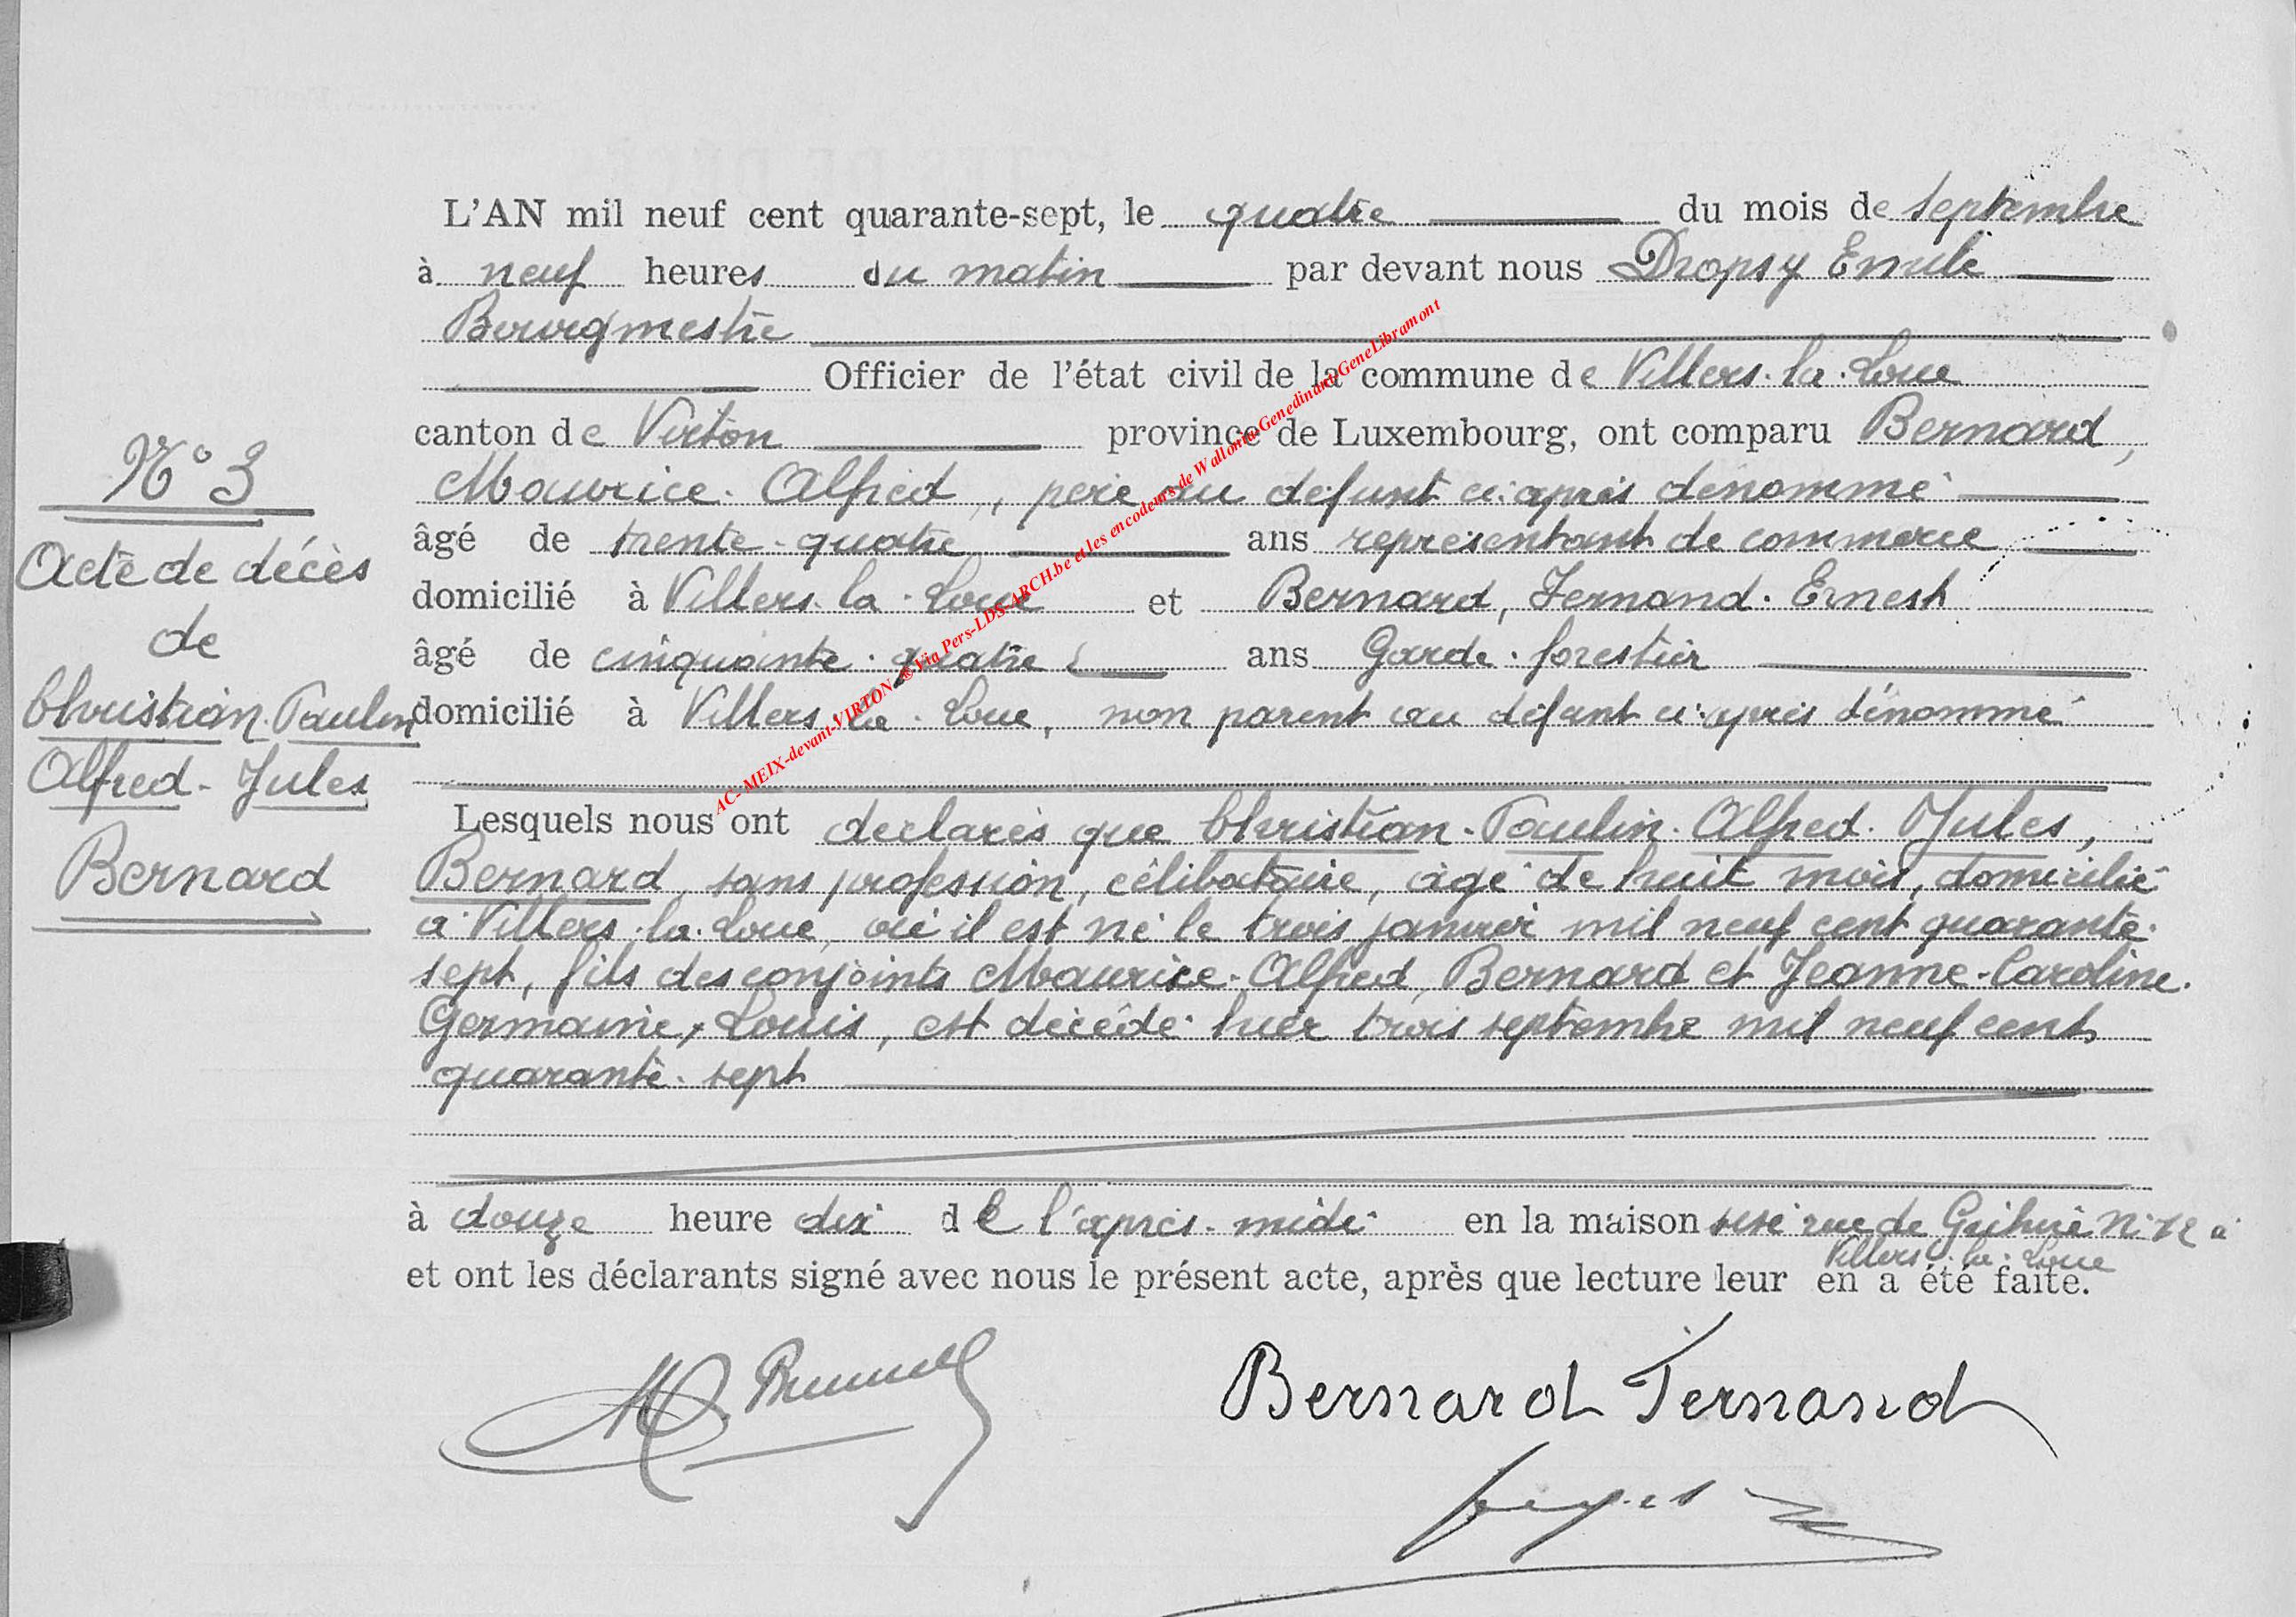 L'AN mil neuf cent quarante-sept, le quatre du mois de septembre
à neuf heures du matin par devant nous Dropsy Emile
Bourgmestre
Officier de l'état civil de la commune de Villers-la-Loue
canton de Virton province de Luxembourg, ont comparu Bernard,
Maurice-Alfred, père du défunt ci-après dénommé
âgé de trente-quatre ans représentant de commerce
domicilié à Villers-la-Loue et Bernard, Fernand-Ernest
âgé de cinquante-quatre ans Garde-forestier
domicilié à Villers-la-Loue, non parent au défunt ci-après dénommé
N° 3
Acte de décès
de
Christian-Paulin
Alfred-Jules
Bernard
Lesquels nous ont déclarés que Christian-Paulin-Alfred-Jules,
Bernard, sans profession, célibataire, âgé de huit mois, domicilié
à Villers-la-Loue, où il est né le trois janvier mil neuf cent quarante-
sept, fils des conjoints Maurice-Alfred, Bernard et Jeanne-Caroline-
Germaine, Louis, est décédé hier trois septembre mil neuf cent
quarante-sept
à douze heure dix de l'après-midi en la maison sise rue de N° 12 à
Villers-la-Loue
et ont les déclarants signé avec nous le présent acte, après que lecture leur en a été faite.
Bernard Fernand
AC-MEIX-devant-VIRTON ©Via Pers-LDS-ARCH.be et les encodeurs de Wallonia-Genedinant-GeneLibramont